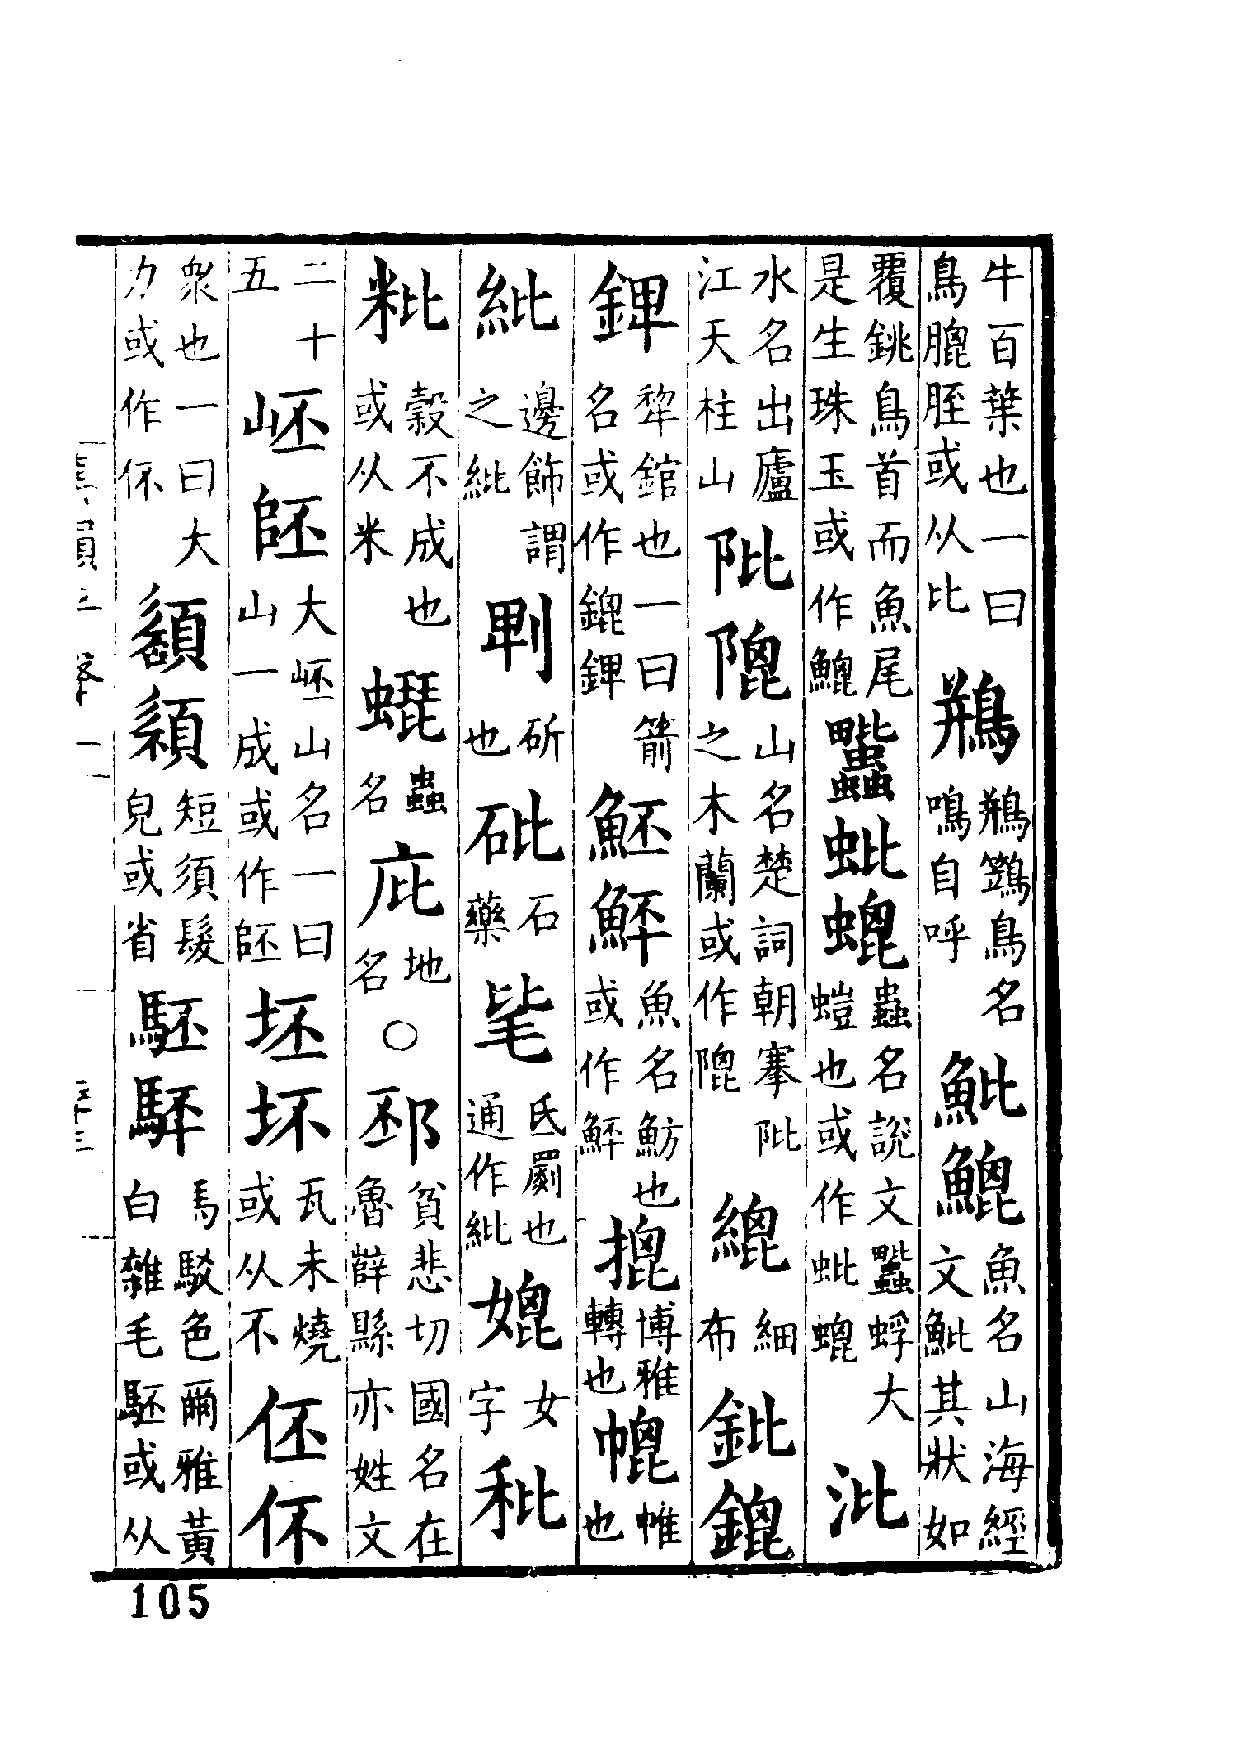 牛百葉也一曰鳥膍胵或从比 鵧 鵧鷑鳥名鳴自呼 魮 魚名山海經文魮其狀如
覆銚鳥首而魚尾是生珠玉或作 蚍 蟲名說文蜉大螘也或作蚍 沘
水名出廬江天柱山 阰 山名楚詞朝搴阰之木蘭或作 細布 鈚
錍 犂錧也一曰箭名或作錍 魾 魚名魴也或作 博雅轉也 帷也
紕 邊飾謂之紕 斫也 砒 石藥 毞 氐罽也通作紕 女字 秕
粃 穀不成也或从米 蟲名 庇 地名 ○ 邳 貧悲切國名在魯薛縣亦姓文
二十五 岯 大岯山名一曰山一成或作 坯坏 瓦未燒或从不 伾伓
衆也一曰大力或作伓 短須髮皃或省 駓 馬駁色爾雅黃白雜毛駓或从
105